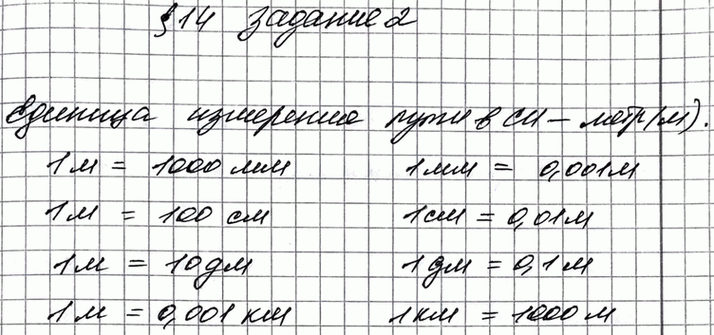 §14 Задание 2
Единица измерение пути в СИ – метр (м).
1 м = 1000 мм 1 мм = 0,001 м
1 м = 100 см 1 см = 0,01 м
1 м = 10 дм 1 дм = 0,1 м
1 м = 0,001 км 1 км = 1000 м